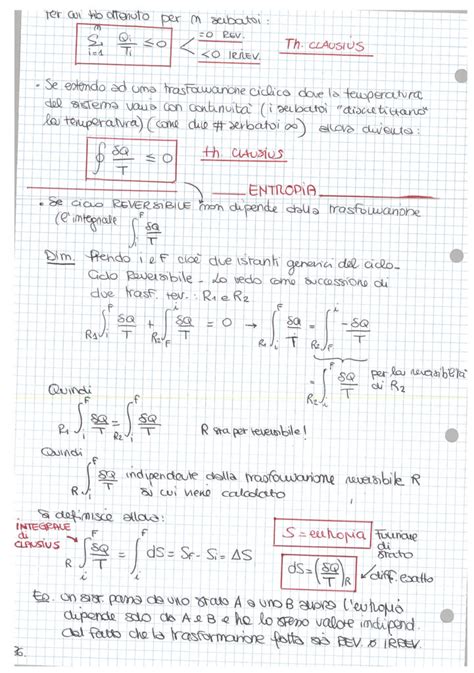 Per cui ho ottenuto per m serbatoi:
m Σ i=1 Qi/Ti ≤ 0 < =0 REV. <0 IRREV. Th. CLAUSIUS
• Se estendo ad una trasformazione ciclica dove la temperatura
del sistema varia con continuità (i serbatoi "discretizzano"
la temperatura) (come due # serbatoi ∞) allora diventa:
∮ δQ/T ≤ 0 th. CLAUSIUS
ENTROPIA
• Se ciclo REVERSIBILE non dipende dalla trasformazione
(l'integrale ∫ᵢᶠ δQ/T
Dim. Prendo i e F cioè due istanti generici del ciclo-
Ciclo Reversibile - Lo vedo come successione di
due trasf. rev.: R1 e R2
R1 ∫ᵢᶠ δQ/T + R2 ∫_Fⁱ δQ/T = 0 → R1 ∫ᵢᶠ δQ/T = R2 ∫_Fⁱ -δQ/T
= R2 ∫ᵢᶠ δQ/T per la reversibilità di R2
Quindi
R1 ∫ᵢᶠ δQ/T = R2 ∫ᵢᶠ δQ/T R sta per reversibile!
Quindi
R ∫ᵢᶠ δQ/T indipendente dalla trasformazione reversibile R
su cui viene calcolato
Si definisce allora:
INTEGRALE di CLAUSIUS
R ∫ᵢᶠ δQ/T = ∫ᵢᶠ dS = SF - Si = ΔS
S = entropia Funzione di stato
dS = (δQ/T)R diff. esatto
Es. Un sist. passa da uno stato A a uno B allora l'entropia
dipende solo da A e B e ha lo stesso valore indipend.
dal fatto che la trasformazione fatta sia REV. o IRREV.